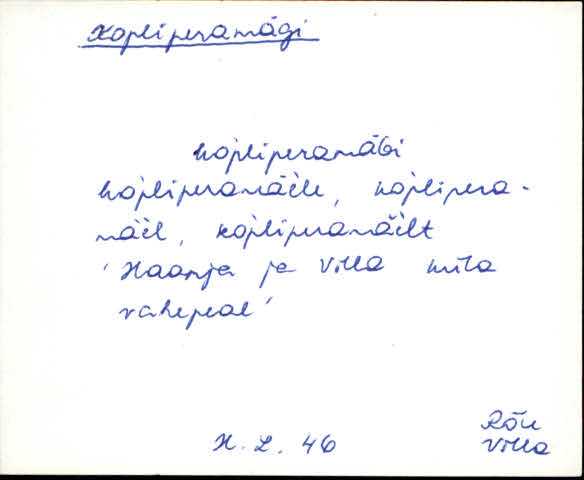 Kopliperamägi
kopliperamäǵi
kopĺiperamäele, kopĺipera-
mäel, kopĺiperamäelt
'Haanja ja Villa küla
vahepeal'
H. L. 46
Rõu
Villa